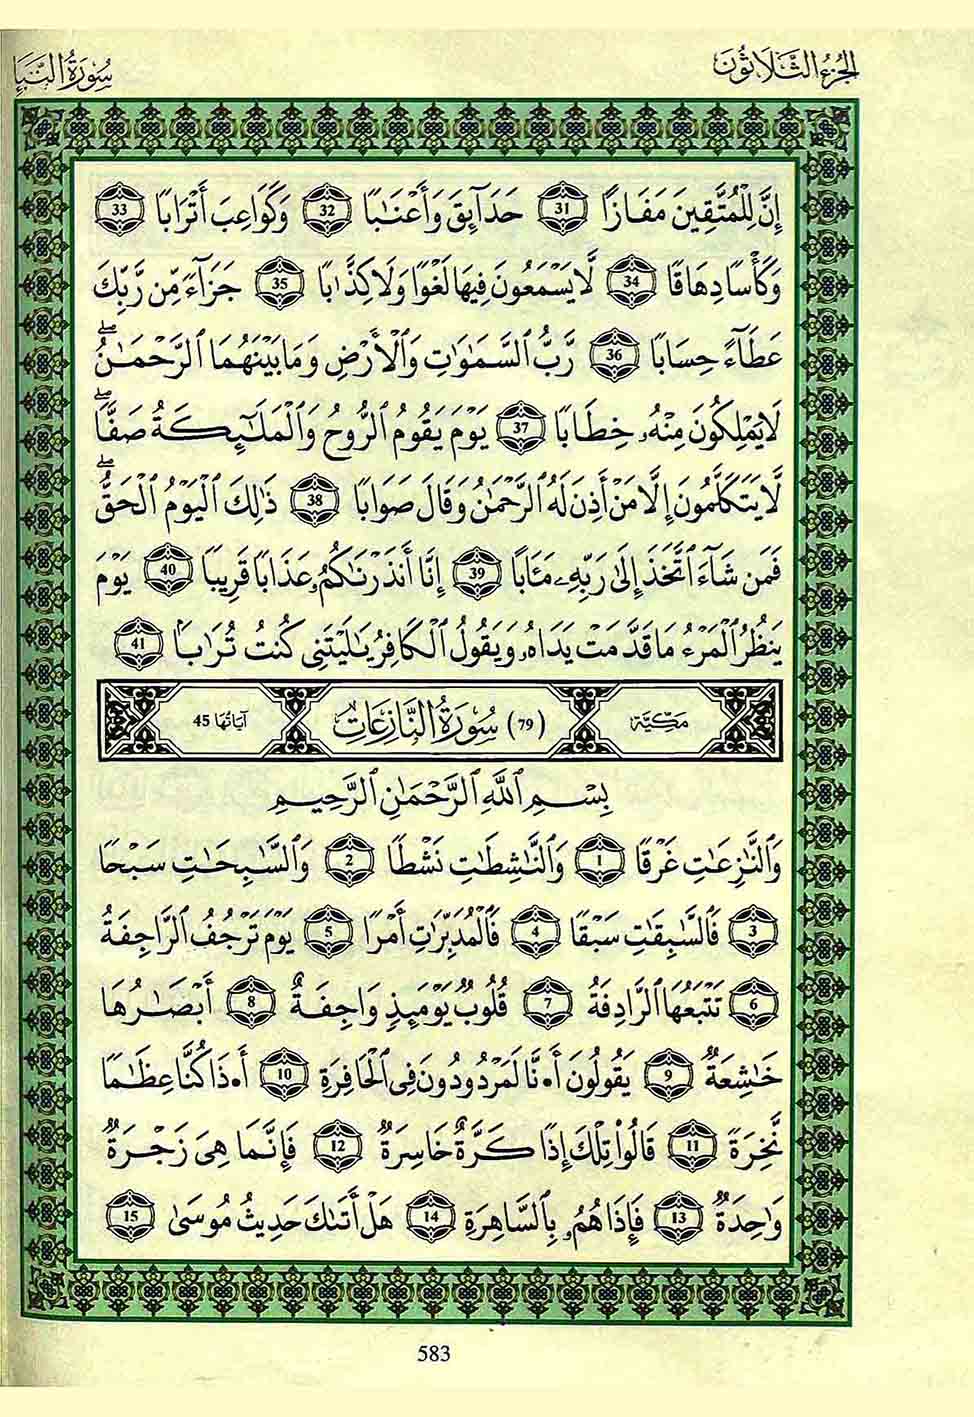 الجزء الثلاثون
سورة النبإ
إِنَّ لِلْمُتَّقِينَ مَفَازًا 31 حَدَآئِقَ وَأَعْنَٰبًا 32 وَكَوَاعِبَ أَتْرَابًا 33
وَكَأْسًا دِهَاقًا 34 لَّا يَسْمَعُونَ فِيهَا لَغْوًا وَلَا كِذَّٰبًا 35 جَزَآءً مِّن رَّبِّكَ
عَطَآءً حِسَابًا 36 رَّبُّ ٱلسَّمَٰوَٰتِ وَٱلْأَرْضِ وَمَا بَيْنَهُمَا ٱلرَّحْمَٰنُ ۖ
لَا يَمْلِكُونَ مِنْهُۥ خِطَابًا 37 يَوْمَ يَقُومُ ٱلرُّوحُ وَٱلْمَلَٰٓئِكَةُ صَفًّا ۖ
لَّا يَتَكَلَّمُونَ إِلَّا مَنْ أَذِنَ لَهُ ٱلرَّحْمَٰنُ وَقَالَ صَوَابًا 38 ذَٰلِكَ ٱلْيَوْمُ ٱلْحَقُّ ۖ
فَمَن شَآءَ ٱتَّخَذَ إِلَىٰ رَبِّهِۦ مَـَٔابًا 39 إِنَّا أَنذَرْنَٰكُمُۥ عَذَابًا قَرِيبًا 40 يَوْمَ
يَنظُرُ ٱلْمَرْءُ مَا قَدَّمَتْ يَدَاهُۥ وَيَقُولُ ٱلْكَافِرُ يَٰلَيْتَنِى كُنتُ تُرَابًا 41
مكية (79) سورة النازعات آياتها 45
بِسْمِ ٱللَّهِ ٱلرَّحْمَٰنِ ٱلرَّحِيمِ
وَٱلنَّٰزِعَٰتِ غَرْقًا 1 وَٱلنَّٰشِطَٰتِ نَشْطًا 2 وَٱلسَّٰبِحَٰتِ سَبْحًا
3 فَٱلسَّٰبِقَٰتِ سَبْقًا 4 فَٱلْمُدَبِّرَٰتِ أَمْرًا 5 يَوْمَ تَرْجُفُ ٱلرَّاجِفَةُ
6 تَتْبَعُهَا ٱلرَّادِفَةُ 7 قُلُوبٌ يَوْمَئِذٍ وَاجِفَةٌ 8 أَبْصَٰرُهَا
خَٰشِعَةٌ 9 يَقُولُونَ أَ•نَّا لَمَرْدُودُونَ فِى ٱلْحَافِرَةِ 10 أَ•ذَا كُنَّا عِظَٰمًا
نَّخِرَةً 11 قَالُوا۟ تِلْكَ إِذًا كَرَّةٌ خَاسِرَةٌ 12 فَإِنَّمَا هِىَ زَجْرَةٌ
وَٰحِدَةٌ 13 فَإِذَا هُمُۥ بِٱلسَّاهِرَةِ 14 هَلْ أَتَىٰكَ حَدِيثُ مُوسَىٰ 15
583